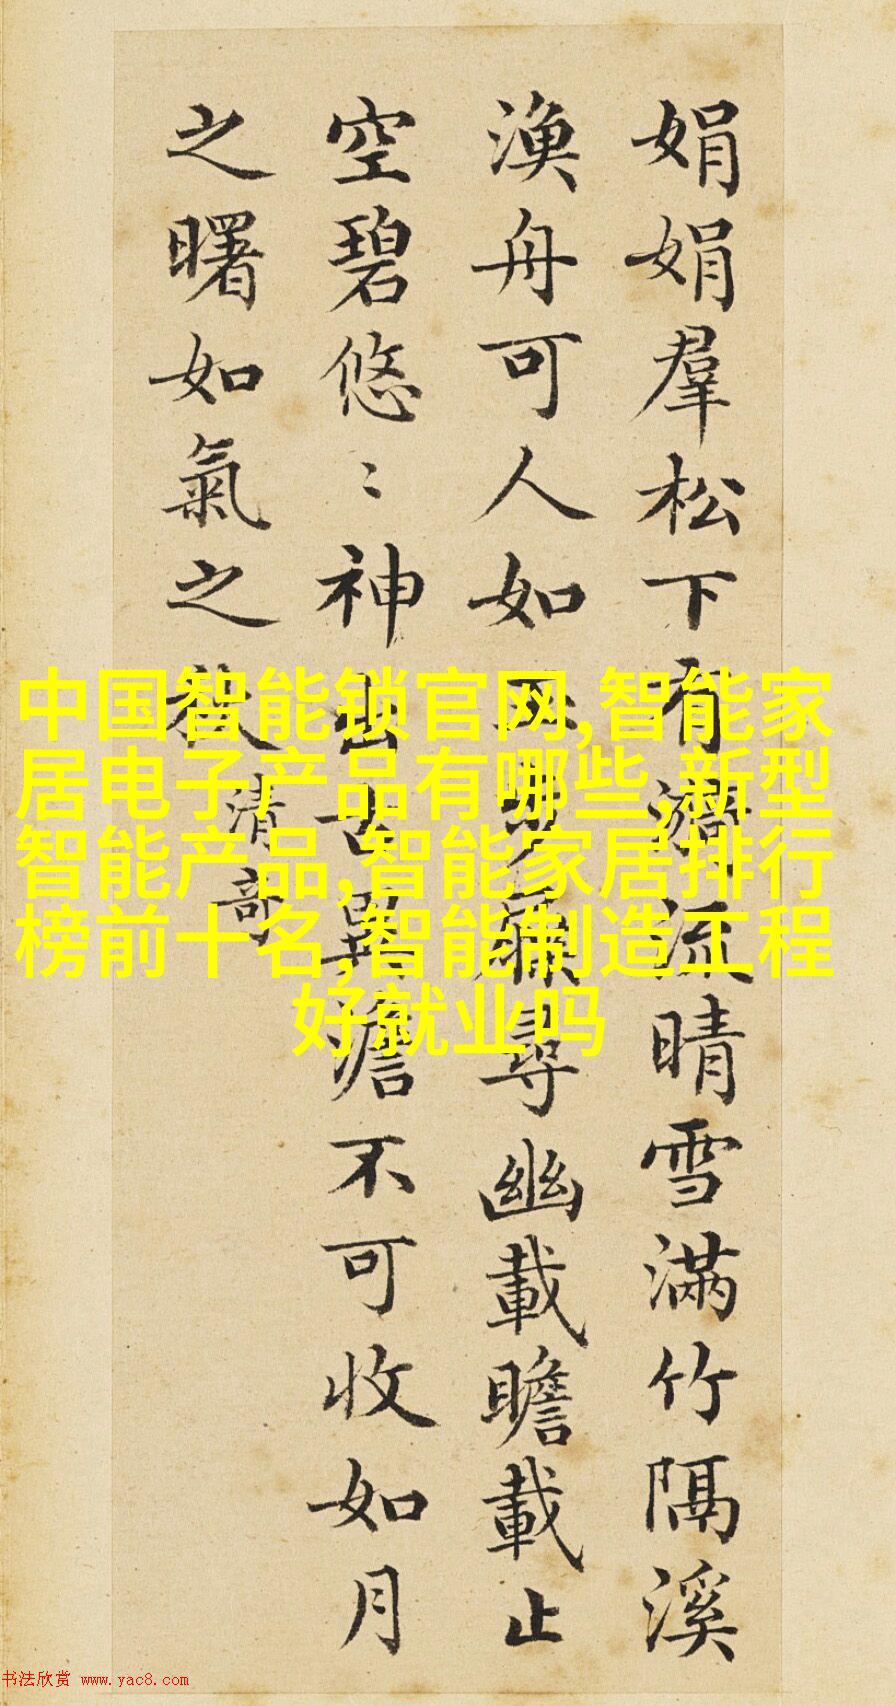 娟娟羣松下有流晴雪滿竹隔溪
漁舟可人如尋幽載瞻載止
空碧悠〻神出古異澹不可收如月
之曙如氣之秋
清奇
中国智能锁官网,智能家
居电子产品有哪些,新型
智能产品,智能家居排行
榜前十名,智能制造工程
好就业吗
书法欣赏 www.yac8.com